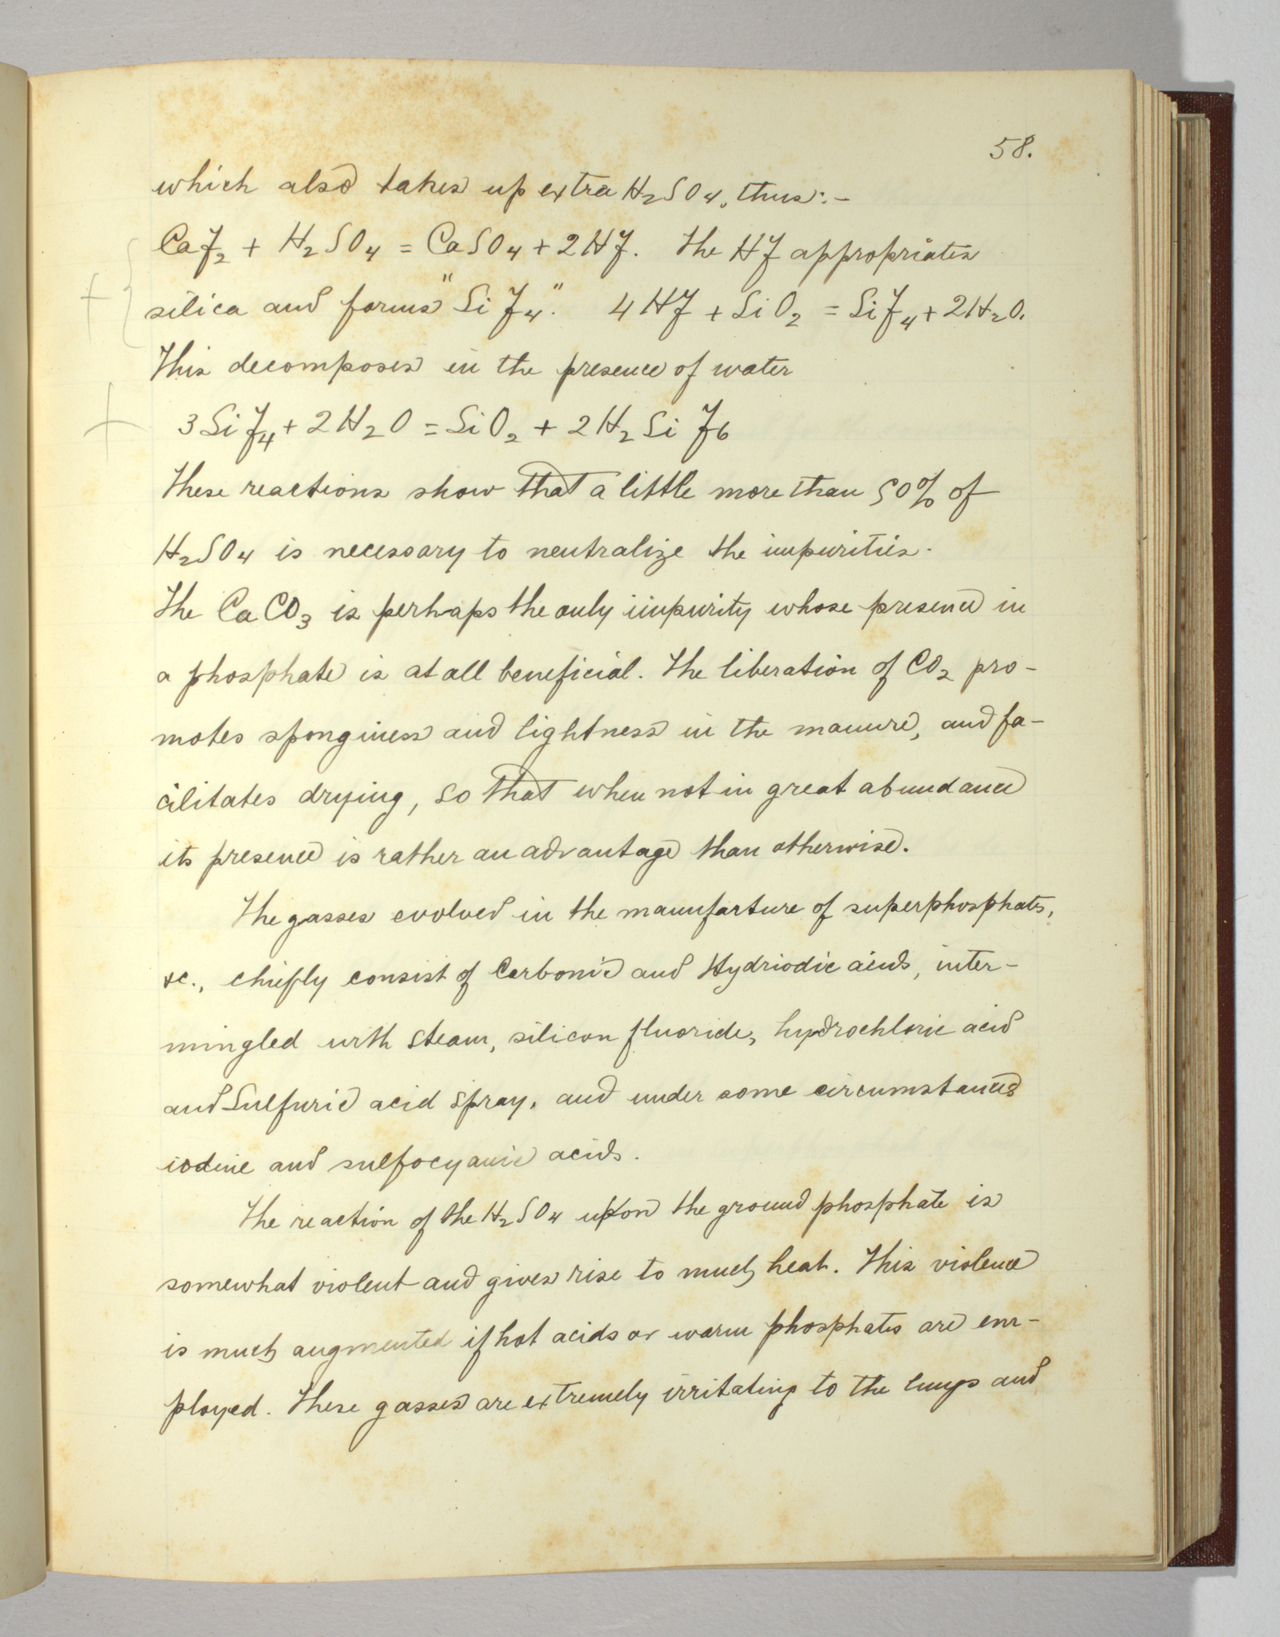 58.
which also takes up extra H₂SO₄, thus:-
CaF₂ + H₂SO₄ = CaSO₄ + 2HF. The HF appropriates
silica and forms "SiF₄". 4HF + SiO₂ = SiF₄ + 2H₂O.
This decomposes in the presence of water
3SiF₄ + 2H₂O = SiO₂ + 2H₂SiF₆
These reactions show that a little more than 50% of
H₂SO₄ is necessary to neutralize the impurities.
The CaCO₃ is perhaps the only impurity whose presence in
a phosphate is at all beneficial. The liberation of CO₂ pro-
motes sponginess and lightness in the manure, and fa-
cilitates drying, so that when not in great abundance
its presence is rather an advantage than otherwise.
The gasses evolved in the manufacture of superphosphates,
&c., chiefly consist of Carbonic and Hydriodic acids, inter-
mingled with steam, silicon fluoride, hydrochloric acid
and Sulfuric acid spray, and under some circumstances
iodine and sulfocyanic acids.
The reaction of the H₂SO₄ upon the ground phosphate is
somewhat violent and gives rise to much heat. This violence
is much augmented if hot acids or warm phosphates are em-
ployed. These gasses are extremely irritating to the lungs and